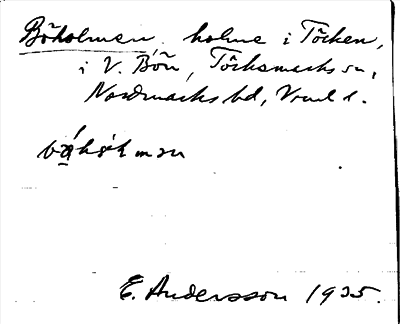 Böholmen, holme i Töcken,
i V. Bön, Töcksmarks sn,
Nordmarks hd, Vrml d.
E. Andersson 1935.